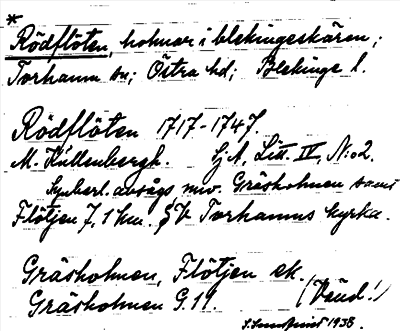 *
Rödflöten, holmar i blekingeskären;
Torhamn sn; Östra hd; Blekinge l.
Rödflöten 1717-1747.
M. Kullenbergh. Sj A, Litt. IV, N:o 2.
Synberl. avsågs mv. Gräsholmen samt
Flötjen 7,1 km. SV Torhamns kyrka.
Gräsholmen, Flötjen ek.
Gräsholmen G.19. (Vänd!)
1938.